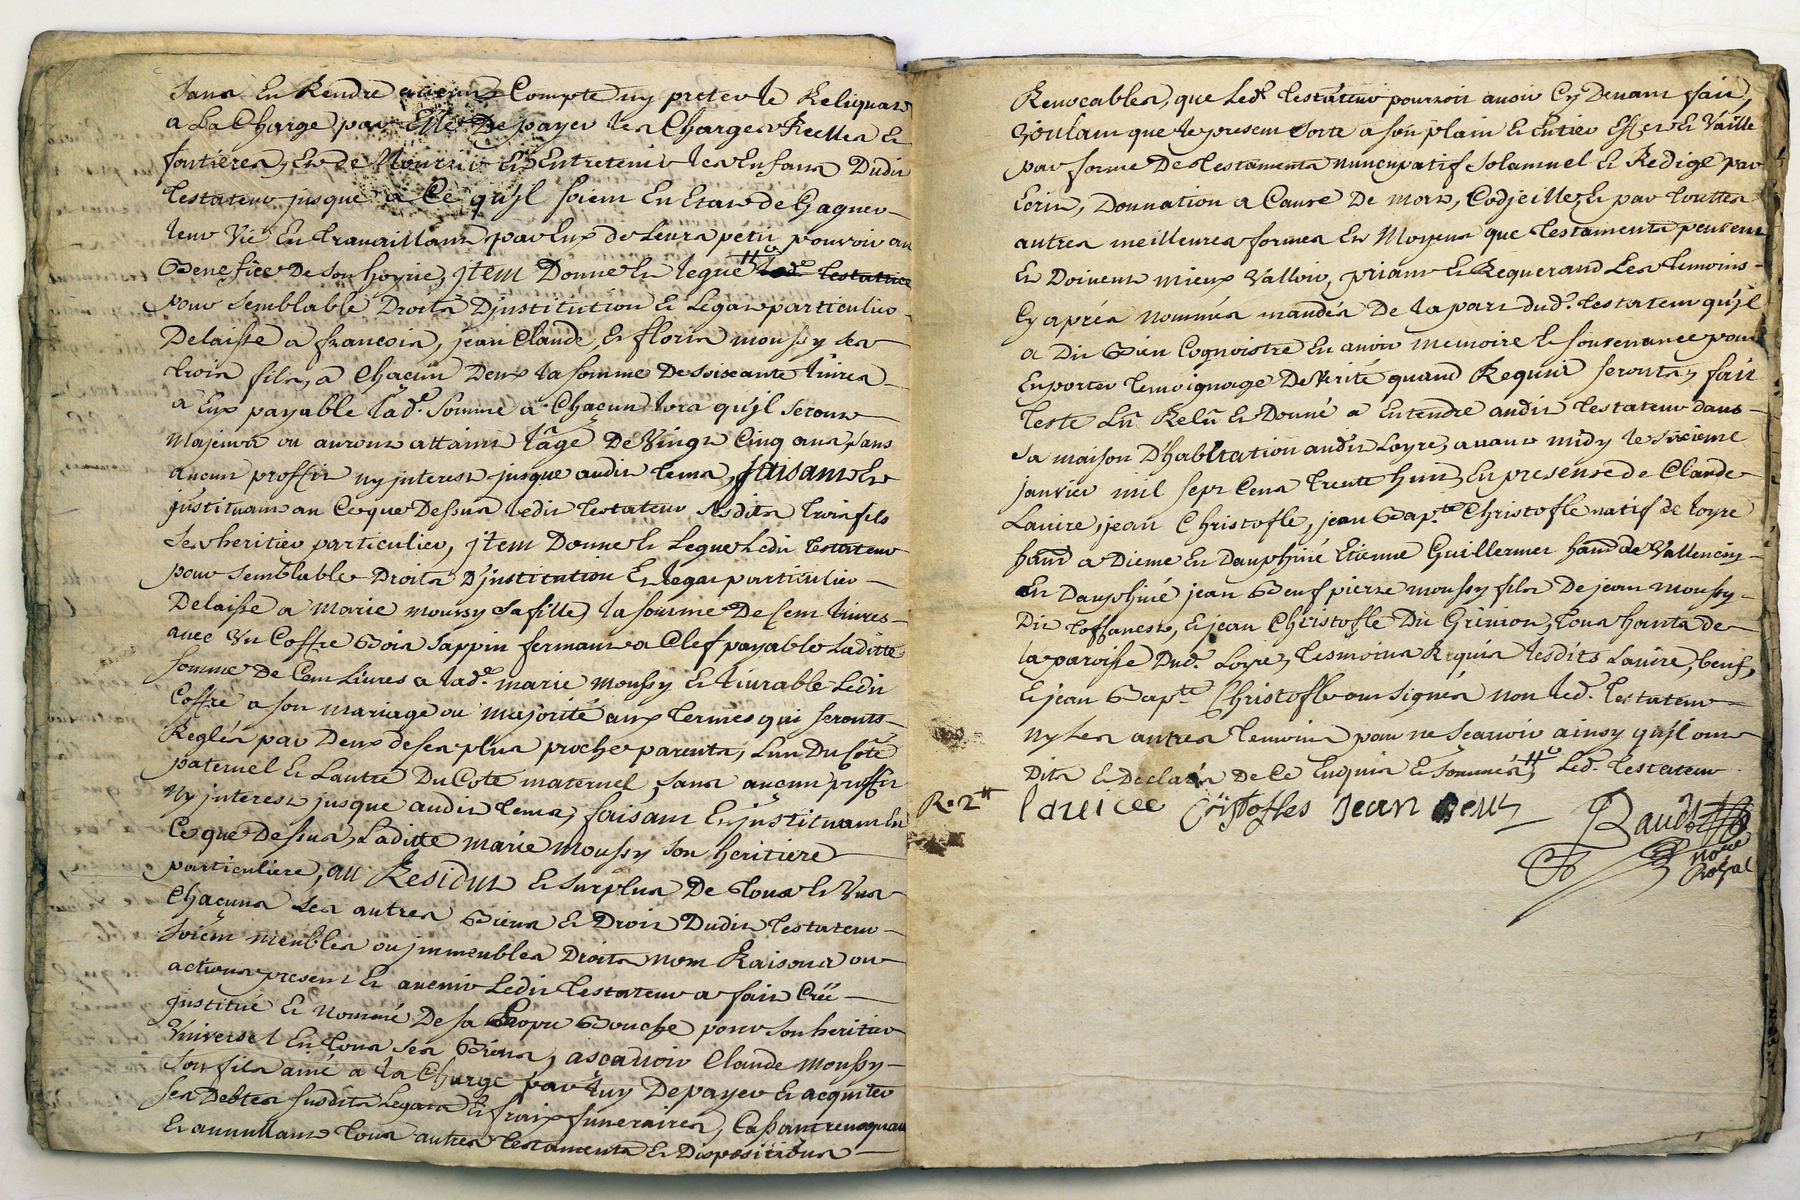 sans En Rendre aucuns Compte ny preter le Reliquat
a La Charge par Elle De payer les Charges Reelles Et
fontieres, Et de Nourrir Et Entretenir les Enfans Dudit
Testateur jusque a Ce qu'jl soient En Etat de Gagner
leur Vie En travaillant par Eux de Leurs petit pouvoir au
Benefice De son hoyrie, jtem Donne Et legue
pour semblable Droits D'jnstitution Et Legat particulier
Delaisse a francois, jean Claude, Et floris moussy ses
trois fils, a Chacun Deux la somme De soixante livres
a Eux payable lade. somme a Chacun lors qu'jl seront
Majeurs ou auront attaint l'âge De Vingt Cinq ans, sans
aucun proffit ny jnterest jusque audit tems, faisant Et
jnstituant au Ceque Dessus ledit testateur sesdits trois fils
ses heritier particulier, jtem Donne Et Legue Ledit testateur
pour semblable Droits D'jnstitution Et legat particulier
Delaisse a Marie moussy sa fille, la somme De Cent livres
avec Vn Coffre Bois sappin fermant a Clef payable Laditte
somme De Cent Livres a lade. marie moussy Et livrable Ledit
Coffre a son mariage ou majorité aux termes qui seronts
Reglés par Deux de ses plus proche parents, L'un Du Côté
paternel Et Lautre Du Cote maternel, sans aucun proffit
Ny jnterest jusque audit tems, faisant Et jnstituant En
Ce que Dessus, Laditte marie moussy son heritiere
particuliere, au Residut Et surplus De tous Et Vns
Chacuns ses autres Biens Et Droit Dudit testateur
soient meubles ou jmmeubles Droits nom Raisons ou
actions present Et avenir Ledit testateur a fait Créé
jnstitué Et Nommé De sa propre Bouche pour son heritier
Vniversel En tous ses Biens, ascavoir Claude moussy
son fils ainé a la Charge par luy De payer Et acquiter
ses Debtes susdits Legats Et fraix funeraires, Cassant revoquant
Et annullant tous autres testaments Et Dispositions
Revocables, que Led. testateur pourroit avoir Cy Devant fait,
Voulant que le present sorte a son plain Et Entier Effet Et Vaille
par forme De testaments nuncupatif solamnel Et Redigé par
Ecrit, Donnation a Cause De mort, Codjcille, Et par touttes
autres meilleures formes Et Moyens que testaments peuvent
Et Doivent mieux Valloir, priant Et Requerand Les temoins
Cy aprés nommés mandés De la part dud. testateur qu'jl
a Dit Bien Cognoistre En avoir memoire Et souvenance pour
En porter temoignage De Verité quand Requis seronts, fait
Testé Lû Relû Et Donné a Entendre audit testateur dans
sa maison D'habitation audit Loyre, avant midy le sixieme
janvier mil sept Cens trente huit, En presense de Claude
Lavire, jean Christofle, jean Bapte. Christofle natif de loyre
hant a Dieme En Dauphiné Etienne Guillermet hant de Vallencin
En Dauphiné jean Beuf pierre moussy fils De jean moussy
Dit toffanest, Et jean Christofle Dit Grinion, tous hants de
la paroisse Dud. Loyre, tesmoins Requis lesdits Lavire, beuf,
Et jean Bapte. Christofle ont signés non led. testateur
ny Les autres temoins pour ne Scavoir ainsy qu'jl ont
Dits Et Declarés De Ce Enquis Et sommés, Led. testateur
R. 2 lavire Cristofles Jean Beuf Baud
Nore
Royal